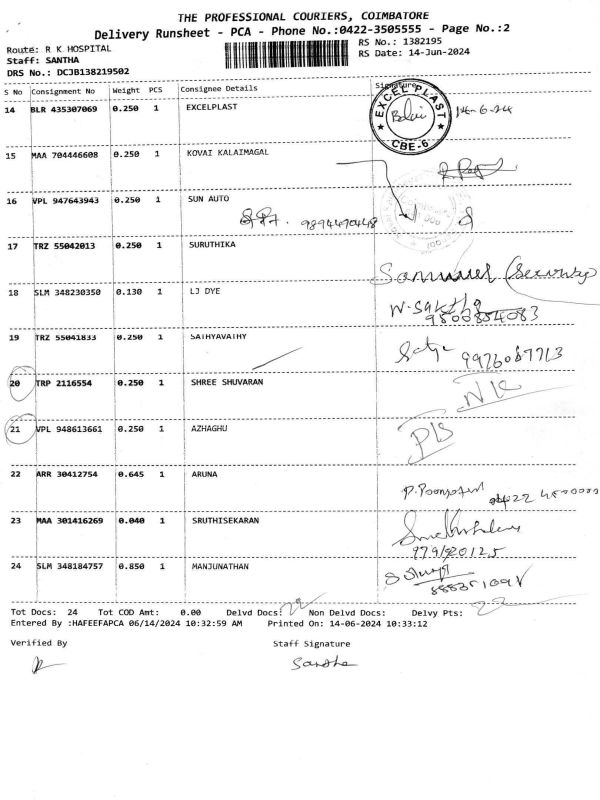 THE PROFESSIONAL COURIERS, COIMBATORE
Delivery Runsheet - PCA - Phone No.:0422-3505555 - Page No.:2
Route: R K HOSPITAL
RS No.: 1382195
Staff: SANTHA
RS Date: 14-Jun-2024
DRS No.: DCJB138219502
S No Consignment No Weight PCS Consignee Details Signature
14 BLR 435307069 0.250 1 EXCELPLAST
EXCEL PLAST CBE-6 14-6-24
15 MAA 704446608 0.250 1 KOVAI KALAIMAGAL
16 VPL 947643943 0.250 1 SUN AUTO
9894470448
17 TRZ 55042013 0.250 1 SURUTHIKA
Samuel (Security)
18 SLM 348230350 0.130 1 LJ DYE
9500854083
19 TRZ 55041833 0.250 1 SATHYAVATHY
20 TRP 2116554 0.250 1 SHREE SHUVARAN
21 VPL 948613661 0.250 1 AZHAGHU
22 ARR 30412754 0.645 1 ARUNA
23 MAA 301416269 0.040 1 SRUTHISEKARAN
24 SLM 348184757 0.850 1 MANJUNATHAN
Tot Docs: 24 Tot COD Amt: 0.00 Delvd Docs: 22 Non Delvd Docs: Delvy Pts: 22
Entered By :HAFEEFAPCA 06/14/2024 10:32:59 AM Printed On: 14-06-2024 10:33:12
Verified By Staff Signature
Santha